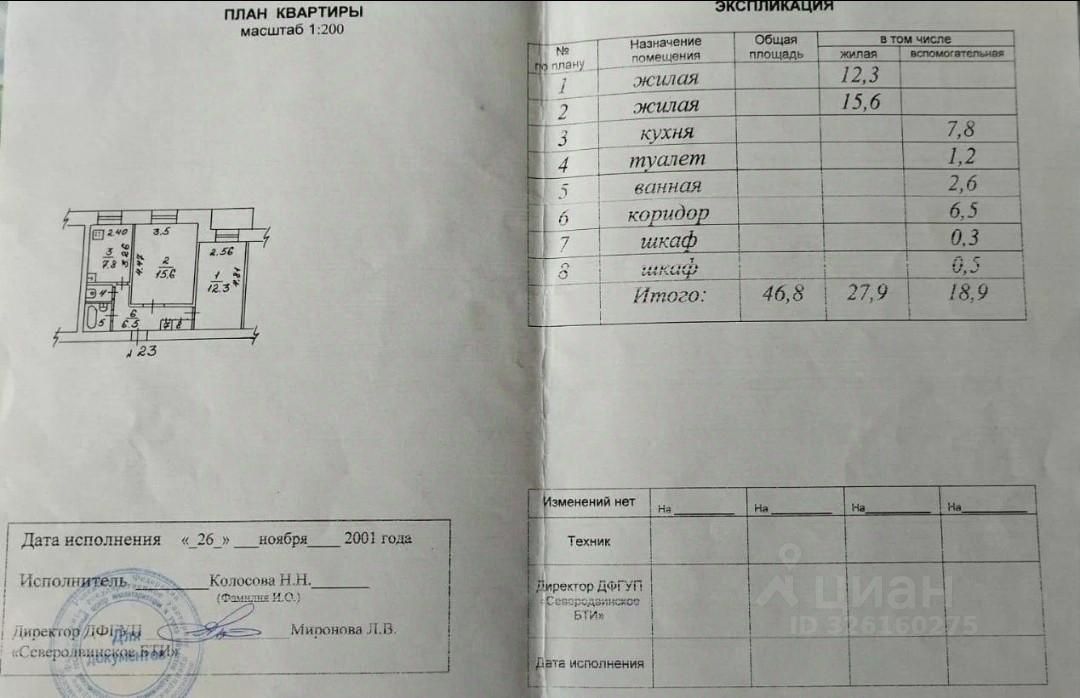 ПЛАН КВАРТИРЫ
масштаб 1:200
2.40
3.5
2.56
3
7.8
3.26
4.47
2
15.6
1
12.3
4.81
4
5
6
6.5
7
8
23
Дата исполнения «_26_» ___ноября____ 2001 года
Исполнитель Колосова Н.Н.
(Фамилия И.О.)
Директор ДФГУП Миронова Л.В.
«Северодвинское БТИ»
Для
документов
ЭКСПЛИКАЦИЯ
№ по плану Назначение помещения Общая площадь в том числе
жилая вспомогательная
1 жилая 12,3
2 жилая 15,6
3 кухня 7,8
4 туалет 1,2
5 ванная 2,6
6 коридор 6,5
7 шкаф 0,3
8 шкаф 0,5
Итого: 46,8 27,9 18,9
Изменений нет На На На На
Техник
Директор ДФГУП
«Северодвинское
БТИ»
Дата исполнения
циан
ID 326160275